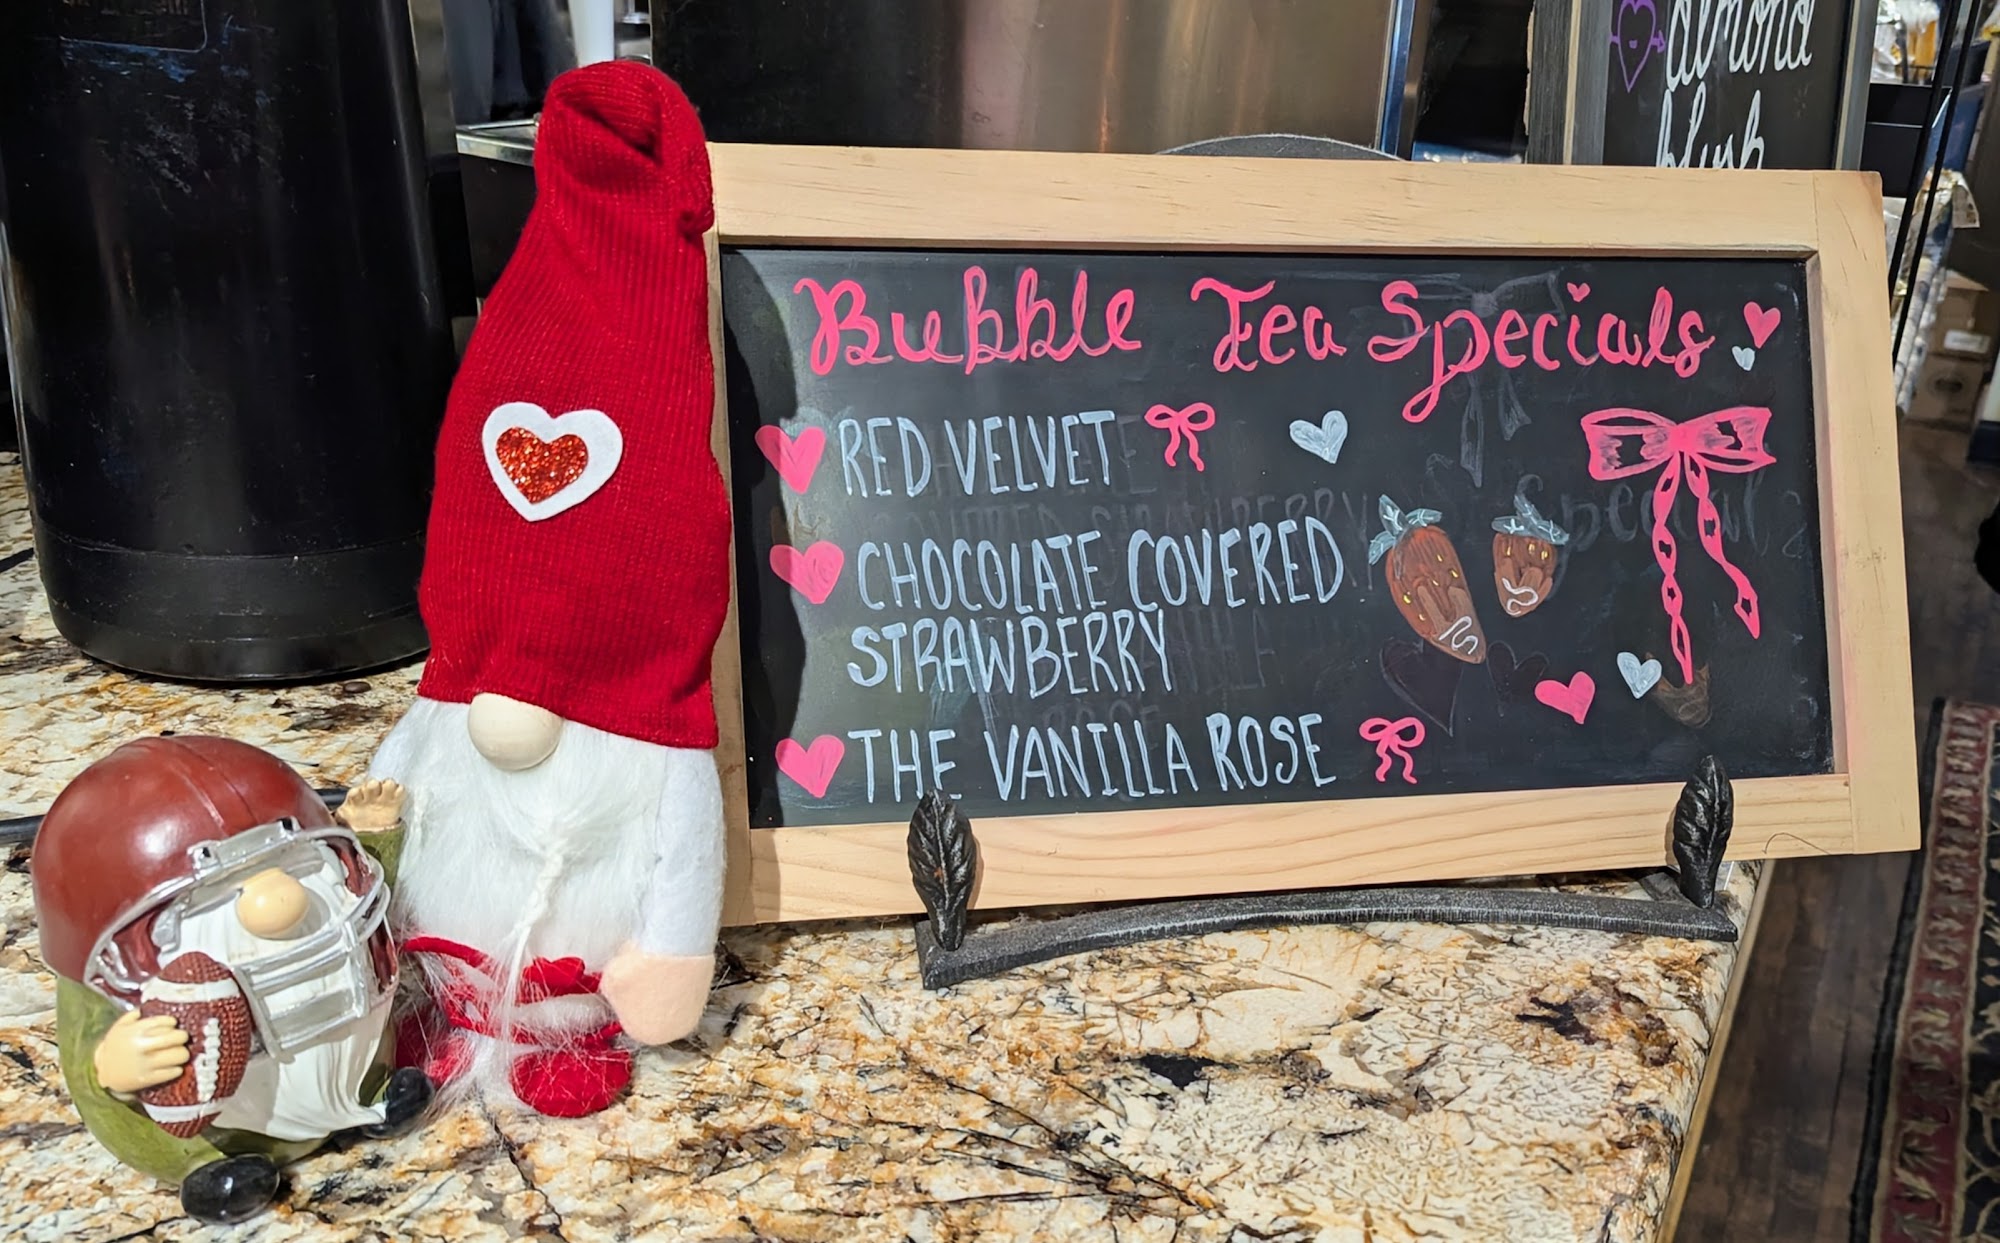 almond
blush
Bubble Tea Specials
RED VELVET
CHOCOLATE COVERED
STRAWBERRY
THE VANILLA ROSE